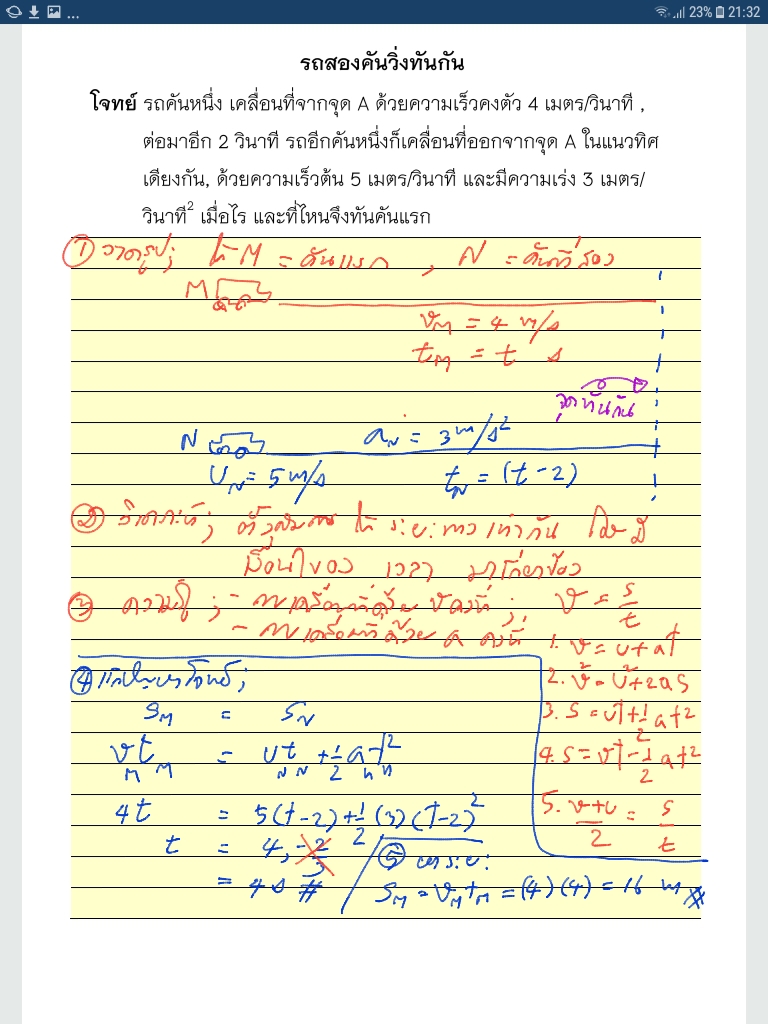 ... 23% 21:32
รถสองคันวิ่งทันกัน
โจทย์ รถคันหนึ่ง เคลื่อนที่จากจุด A ด้วยความเร็วคงตัว 4 เมตร/วินาที ,
ต่อมาอีก 2 วินาที รถอีกคันหนึ่งก็เคลื่อนที่ออกจากจุด A ในแนวทิศ
เดียงกัน, ด้วยความเร็วต้น 5 เมตร/วินาที และมีความเร่ง 3 เมตร/
วินาที² เมื่อไร และที่ไหนจึงทันคันแรก
① วาดรูป; ให้ M = คันแรก , N = คันที่สอง
M
v_M = 4 m/s
t_M = t s
จุดทันกัน
N a_N = 3 m/s²
U_N = 5 m/s t_N = (t-2)
② วิเคราะห์; ตั้งสมการ ให้ ระยะทางเท่ากัน โดยมี
เงื่อนไขของ เวลา มาเกี่ยวข้อง
③ ความรู้ ; - การเคลื่อนที่ด้วย v คงที่ ; v = s/t
- การเคลื่อนที่ด้วย a คงที่ 1. v = u+at
④ แก้ปัญหาโจทย์; 2. v² = u²+2as
S_M = S_N 3. s = ut+½at²
v_M t_M = u_N t_N + ½ a_N t_N² 4. s = vt-½at²
4t = 5(t-2)+½(3)(t-2)² 5. (v+u)/2 = s/t
t = 4, -2/3 ⑤ หาระยะ:
= 4 s # S_M = v_M t_M = (4)(4) = 16 m